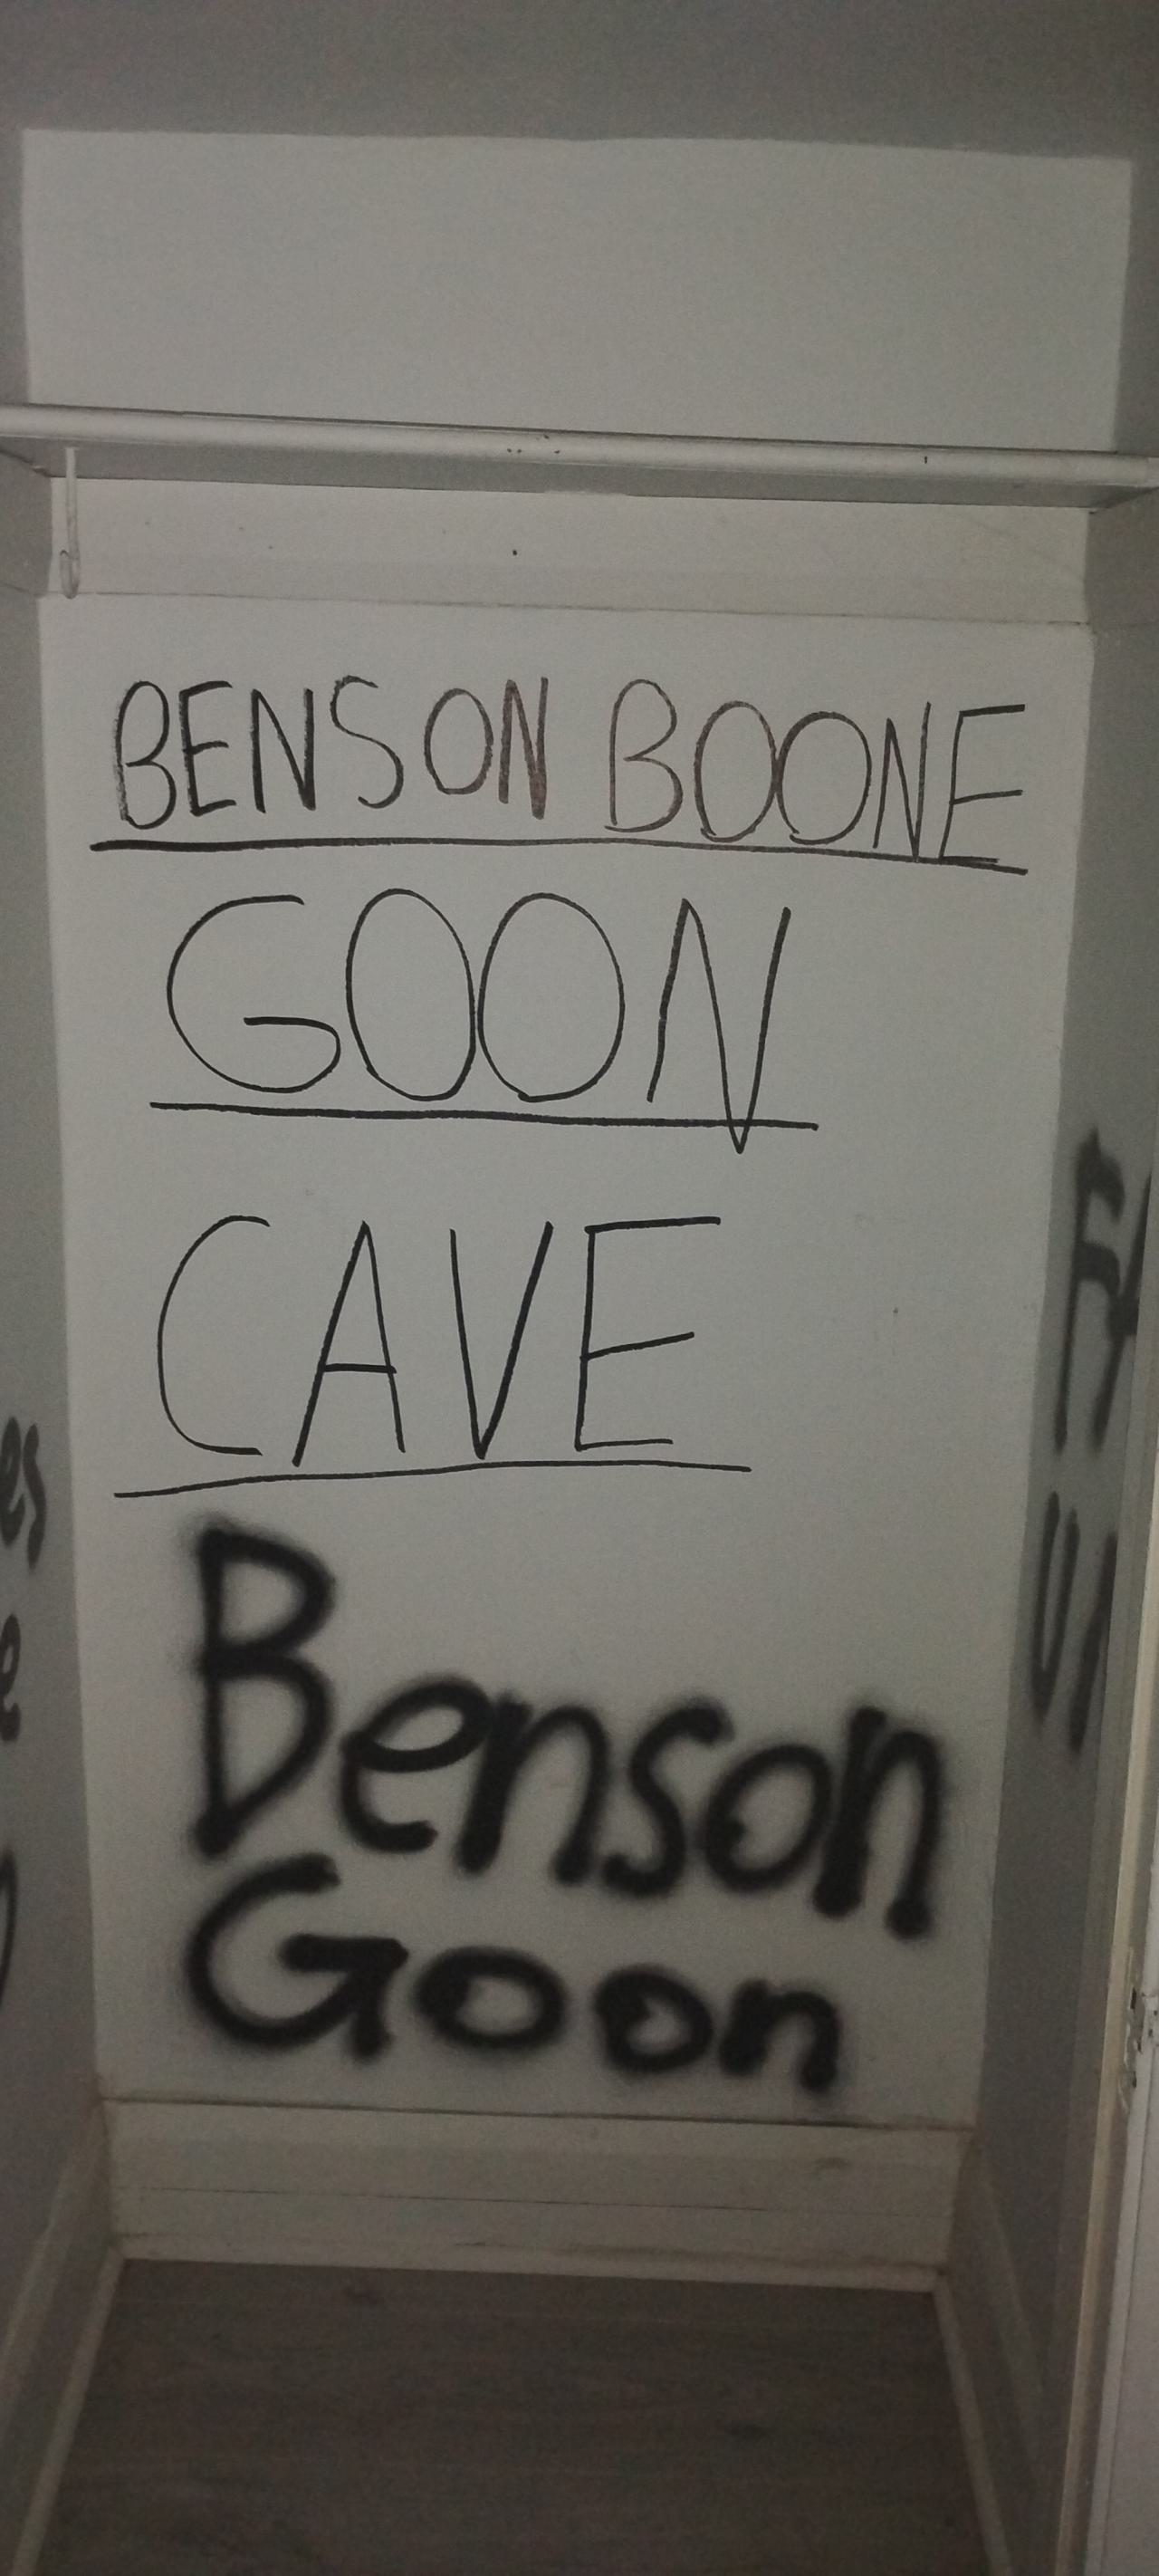 BENSON BOONE
GOON
CAVE
Benson
Goon